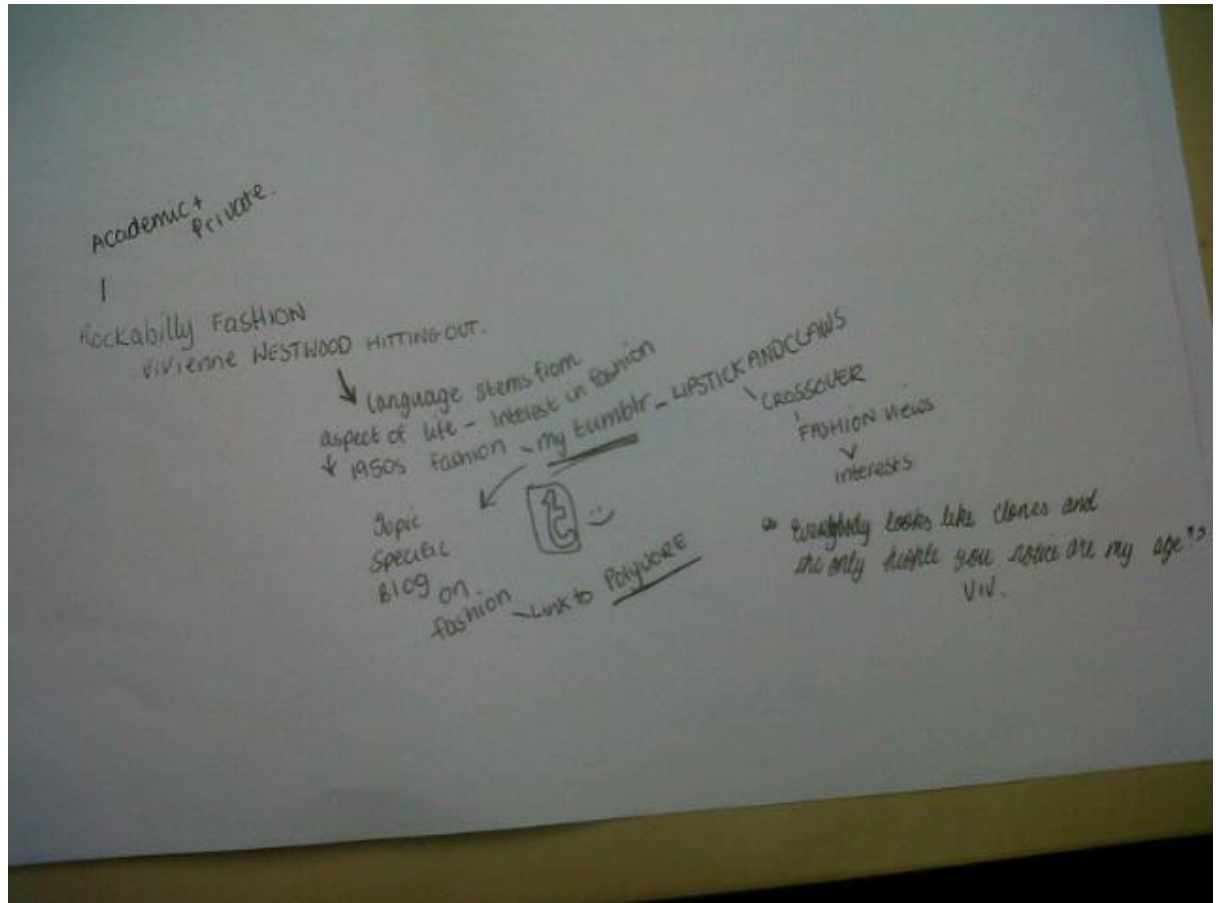 Academic +
Private.
Rockabilly FASHION
Vivienne WESTWOOD HITTING OUT.
Language stems from
aspect of life - Interest in fashion
1950s fashion - my tumblr - LIPSTICKANDCLAWS
CROSSOVER
FASHION views
interests
t
Topic
Specific
Blog on.
fashion - Link to Polyvore
"Everybody looks like clones and
the only people you notice are my age"
Viv.